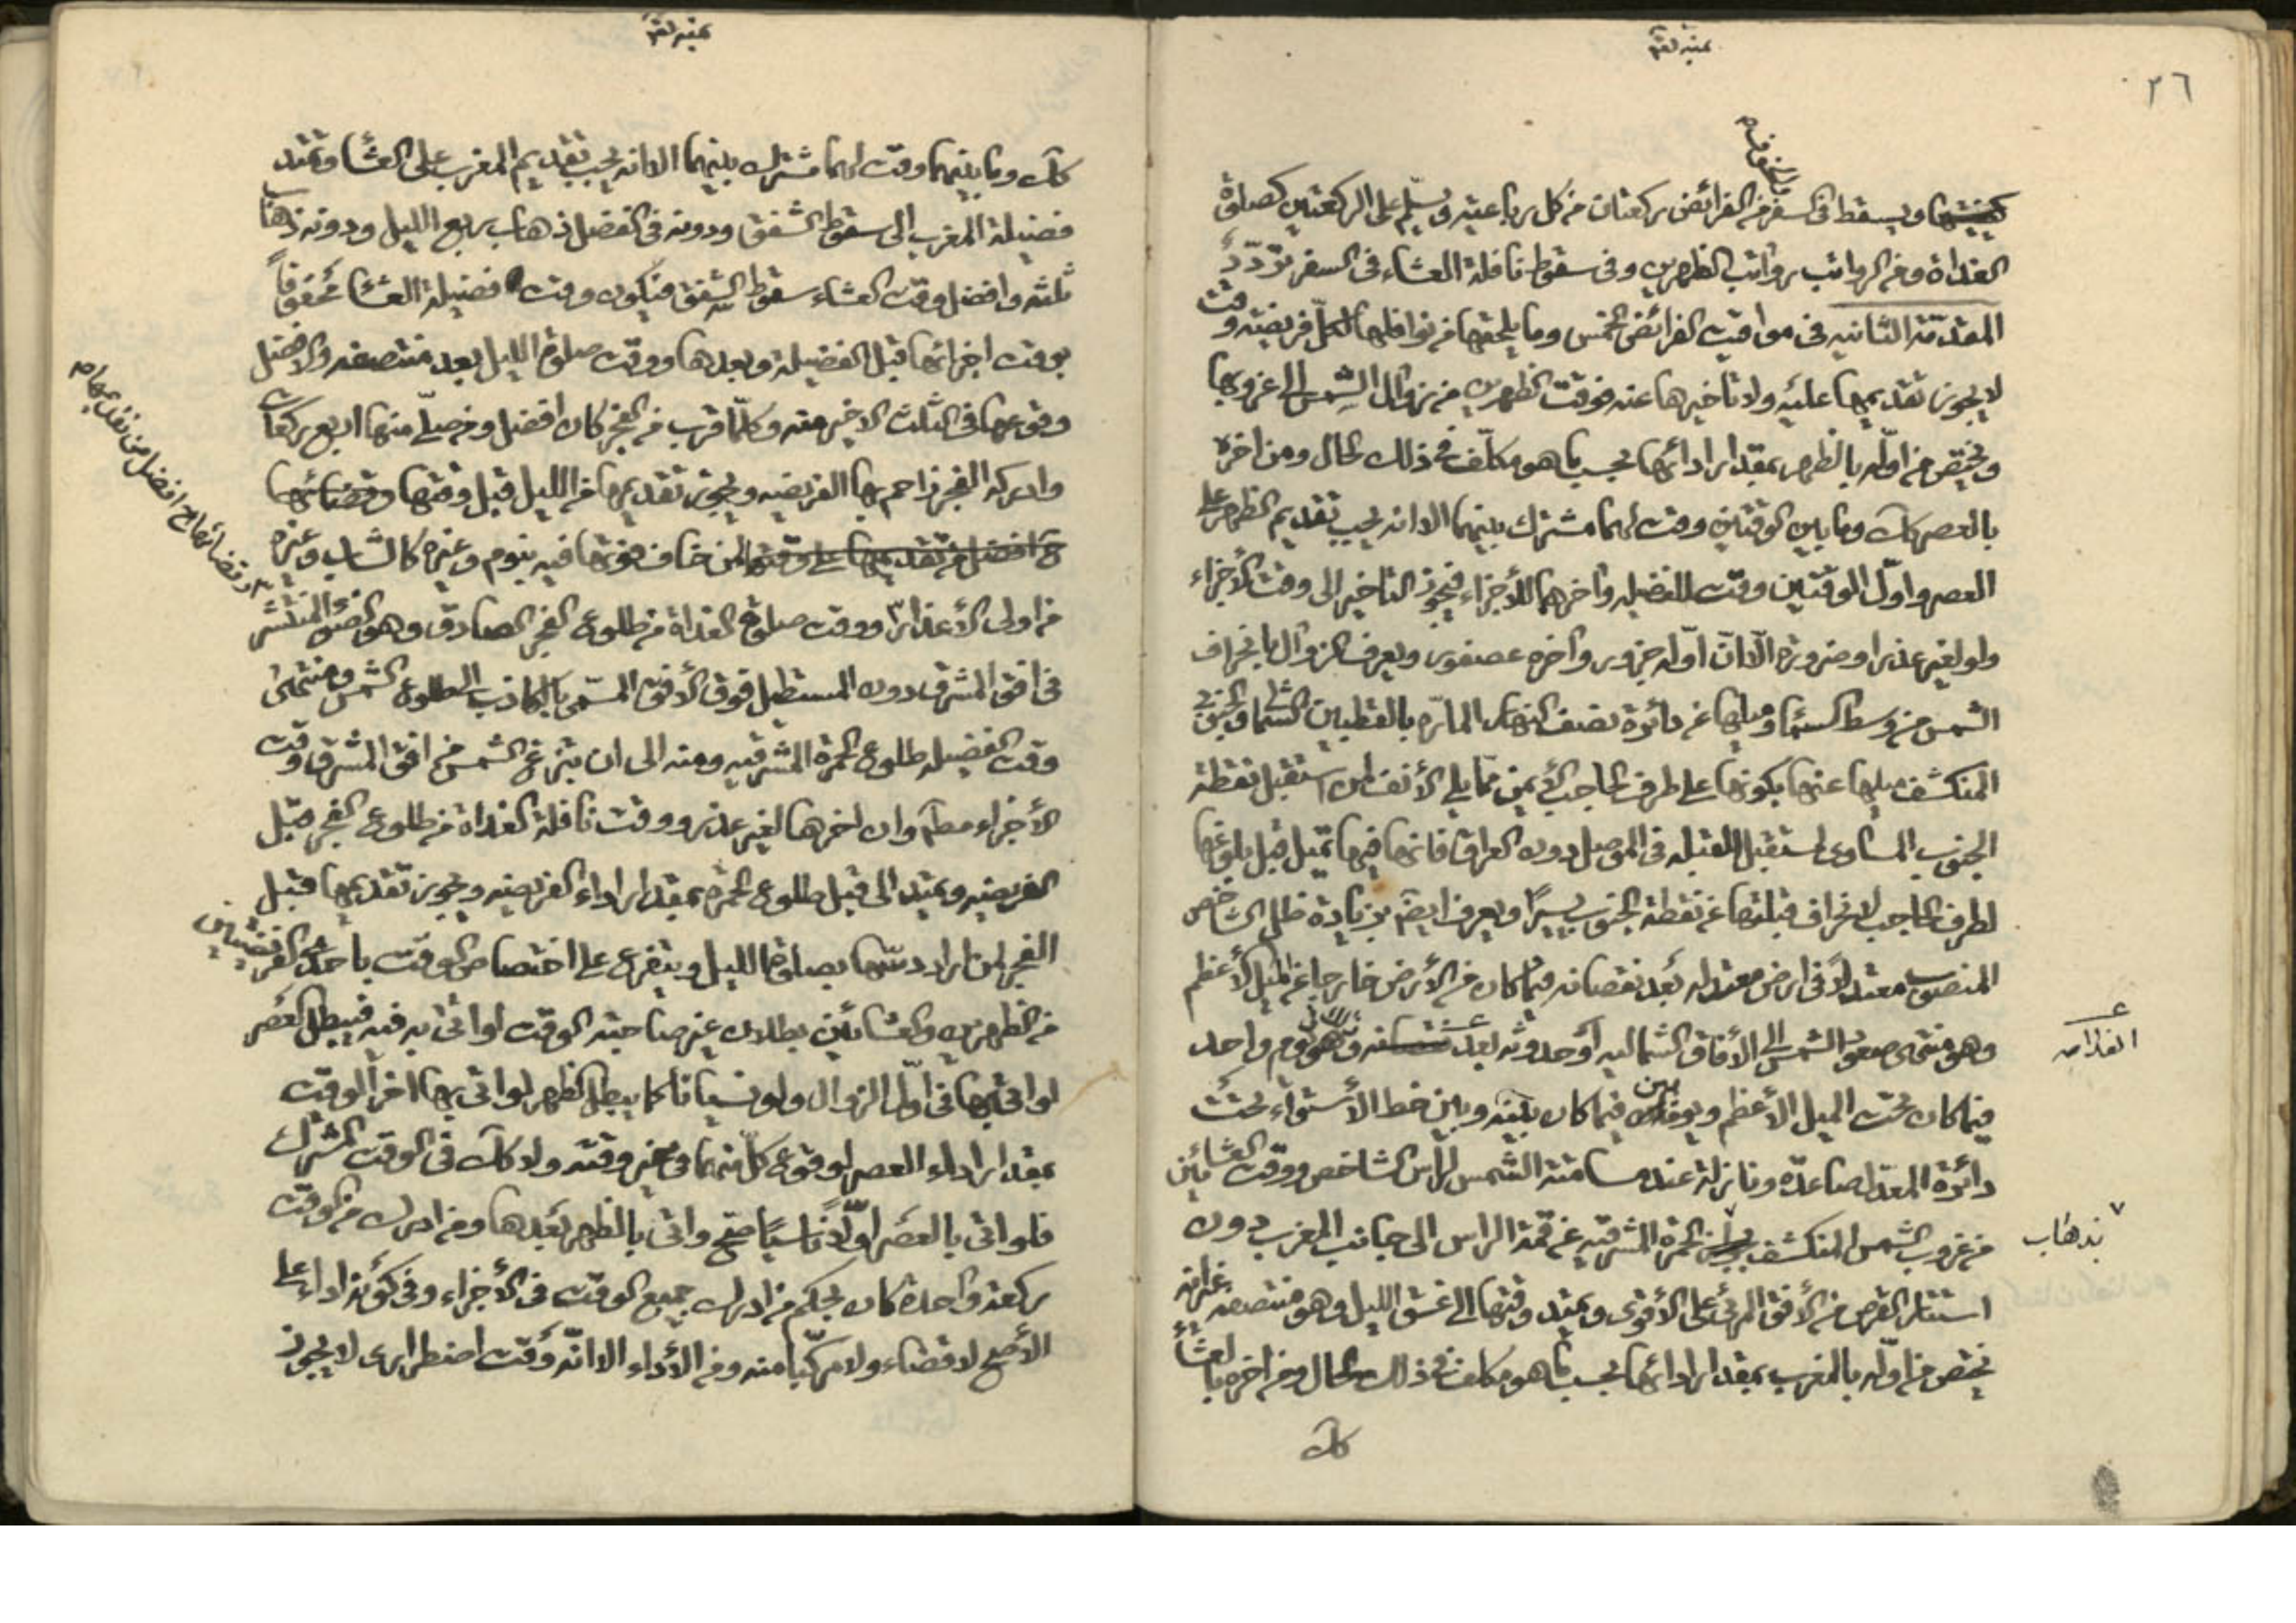 ٢٦
والخوف
ويسقط فى السفر من الفرائض ركعتان من كل رباعيه ويسلّم على الركعتين كصلوة
الغداة ومن الرواتب رواتب الظهرين وفى سقوط نافلة العشاء فى السفر تردّد
المقدّمة الثانيه فى مواقيت الفرائض الخمس وما يلحقها من نوافلها لكلّ فريضه وقت
لا يجوز تقديمها عليه ولا تاخيرها عنه فوقت الظهرين من زوال الشمس الى غروبها
ويختص من اوله بالظهر بمقدار ادائها بحسب ما هو مكلّف فى ذلك الحال ومن اخره
بالعصر كك وما بين الوقتين وقت لهما مشترك بينهما الا انه يجب تقديم الظهر على
العصر واوّل الوقتين وقت للفضيله واخرهما للأجزاء فيجوز التاخير الى وقت الأجزاء
ولو لغير عذر او ضرورة الّا انّ اوله جزور واخره عصفور ويعرف الزوال بانحراف
الشمس من وسط السماء وميلها عن دائرة نصف النهار المارّه بالقطبين الشمالى والجنوبى
المنكشف ميلها عنها بكونها على طرف الحاجب الأيمن ممّا يلى الأنف لمن استقبل نقطة
الجنوب المساوى لمستقبل القبله فى الموصل دون العراق فانها فيها تميل قبل بلوغها
لطرف الحاجب لانحراف قبلتها عن نقطة الجنوب يسيرًا ويعرف ايضا بزيادة ظل الشاخص
المنصوب معتدلًا فى ارض معتدله بعد نقصانه فيما كان من الأرض خارجا عن الميل الأعظم
وهو منتهى صعود الشمس الى الأفاق الشماليه او حدوثه بعد وهو يوم واحد
فيما كان تحت الميل الاعظم ويومان فيما كان بينه وبين خط الأستواء تحت
دائرة المعدّل صاعدة ونازلة عند مسامتة الشمس لرأس الشاخص ووقت العشائين
من غروب الشمس المنكشف الحمرة المشرقيه عن قمّة الراس الى جانب المغرب دون
بذهاب
استتار القرص من الأفق المرئى على الأقوى ويمتد وقتها الى غسق الليل وهو منتصفه
يختص من اوله بالمغرب بمقدار ادائها بحسب ما هو مكلف فى ذلك الحال ومن اخره بالعشاء
كك
كك وما بينهما وقت لهما مشترك بينهما الا انه يجب تقديم المغرب على العشاء ويمتد
فضيلة المغرب الى سقوط الشفق ودونه فى الفضل ذهاب ربع الليل ودونه ذهاب
ثلثه وافضل وقت العشاء سقوط الشفق فيكون وقت فضيلة العشاء محفوفاً
بوقت اجزائها قبل الفضيله وبعدها ووقت صلوة الليل بعد منتصفه والافضل
وقوعها فى الثلث الاخير منه وكلّما قرب من الفجر كان افضل ومن صلّى منها اربع ركعات
وادركه الفجر زاحم بها الفريضه ويجوز تقديمها من الليل قبل وقتها وقضائها
افضل من تقديمها على وقتها لمن خاف فوتها فيه بنوم وغيره كالشاب وغيره
وقضائها ح افضل من تقديمها
من اولى الأعذار ووقت صلوة الغداة من طلوع الفجر الصادق وهو الضوء المنتشر
فى افق المشرق دون المستطيل فوق الأفق المسّمى بالكاذب الى طلوع الشمس ومنتهى
وقت الفضيله طلوع الحمرة المشرقيه ومنه الى ان تبزغ الشمس من افق المشرق وقت
الأجزاء مطلقا وان اخرها لغير عذر ووقت نافلة الغداة من طلوع الفجر قبل
الفريضه ويمتد الى قبل طلوع الحمرة بمقدار اداء الفريضه ويجوز تقديمها قبل
الفجر لمن اراد دسّها بصلوة الليل ويتفرع على اختصاص الوقت باحدى الفرضين
من الظهرين والعشائين بطلان غير صاحبة الوقت لو اتى به فيه فيبطل العصر
لو اتى بها فى اوّل الزوال ولو نسيانا كما يبطل الظهر لو اتى بها اخر الوقت
بمقدار اداء العصر لوقوع كلّ منهما فى غير وقته ولا كك فى الوقت المشترك
فلو اتى بالعصر اوّلًا ناسيًا صح واتى بالظهر بعدها ومن ادرك من الوقت
ركعة واحدة كان بحكم من ادرك جميع الوقت فى الأجزاء وفى كونه اداء على
الأصح لا قضاء ولا مركّبا منه ومن الأداء الا انّه وقت اضطرارى لا يجوز